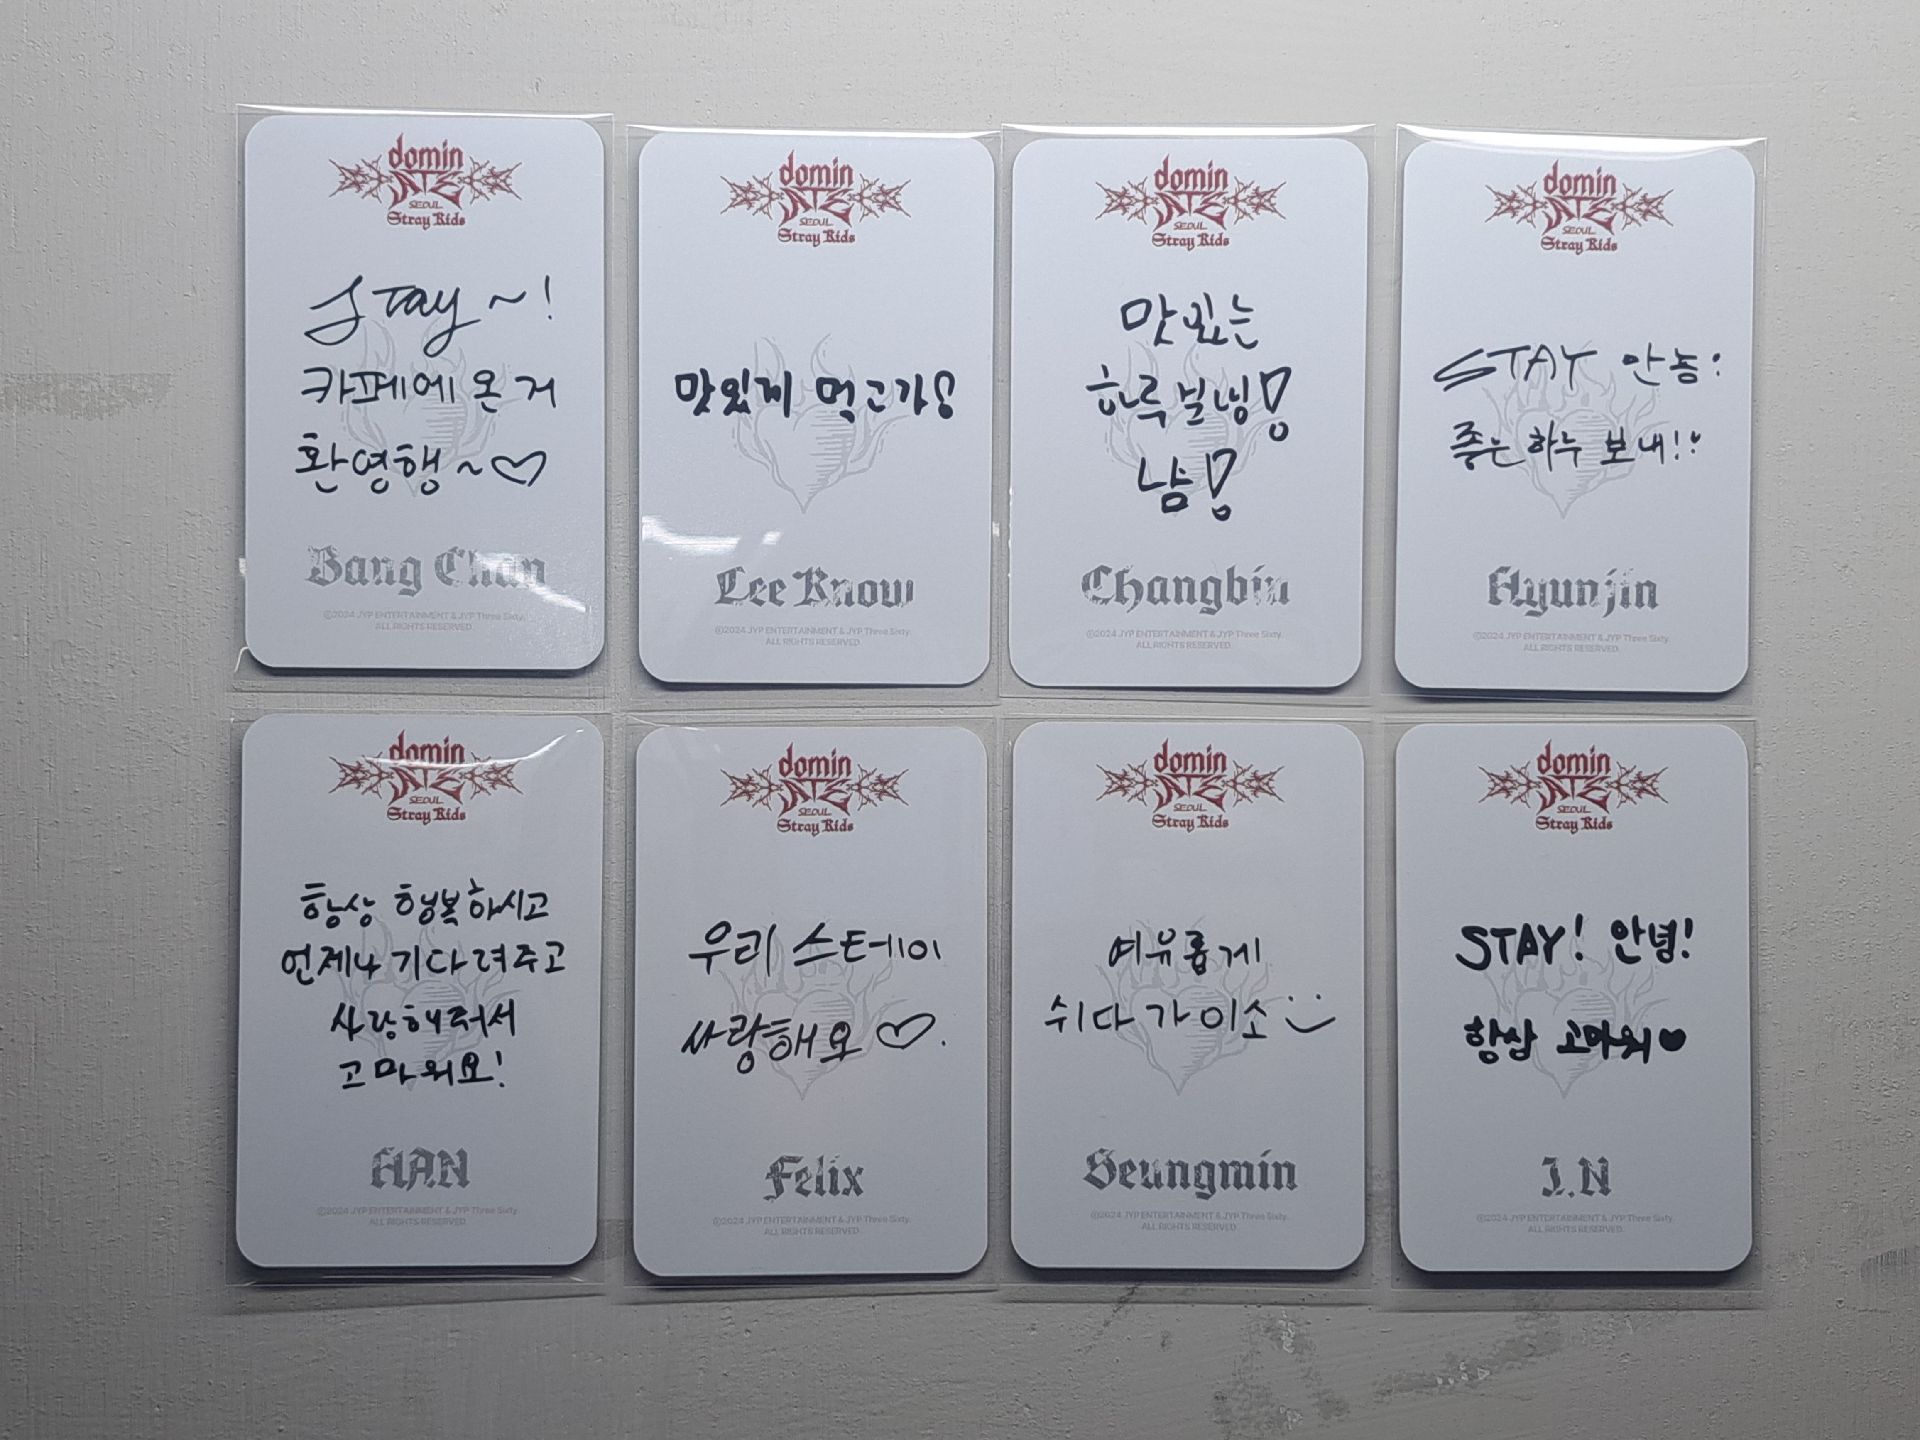 domin
ATE
SEOUL
Stray Kids
Stay ~!
카페에 온 거
환영행~♡
Bang Chan
©2024 JYP ENTERTAINMENT & JYP Three Sixty.
ALL RIGHTS RESERVED.
domin
ATE
SEOUL
Stray Kids
맛있게 먹고가!
Lee Know
©2024 JYP ENTERTAINMENT & JYP Three Sixty.
ALL RIGHTS RESERVED.
domin
ATE
SEOUL
Stray Kids
맛있는
하루보냉!
냠!
Changbin
©2024 JYP ENTERTAINMENT & JYP Three Sixty.
ALL RIGHTS RESERVED.
domin
ATE
SEOUL
Stray Kids
STAY 안농:
좋은 하루 보내!:
Hyunjin
©2024 JYP ENTERTAINMENT & JYP Three Sixty.
ALL RIGHTS RESERVED.
domin
ATE
SEOUL
Stray Kids
항상 행복하시고
언제나 기다려주고
사랑해줘서
고마워요!
HAN
©2024 JYP ENTERTAINMENT & JYP Three Sixty.
ALL RIGHTS RESERVED.
domin
ATE
SEOUL
Stray Kids
우리 스테이
사랑해요♡.
Felix
©2024 JYP ENTERTAINMENT & JYP Three Sixty.
ALL RIGHTS RESERVED.
domin
ATE
SEOUL
Stray Kids
여유롭게
쉬다가이소
Seungmin
©2024 JYP ENTERTAINMENT & JYP Three Sixty.
ALL RIGHTS RESERVED.
domin
ATE
SEOUL
Stray Kids
STAY! 안녕!
항상 고마워♥
I.N
©2024 JYP ENTERTAINMENT & JYP Three Sixty.
ALL RIGHTS RESERVED.